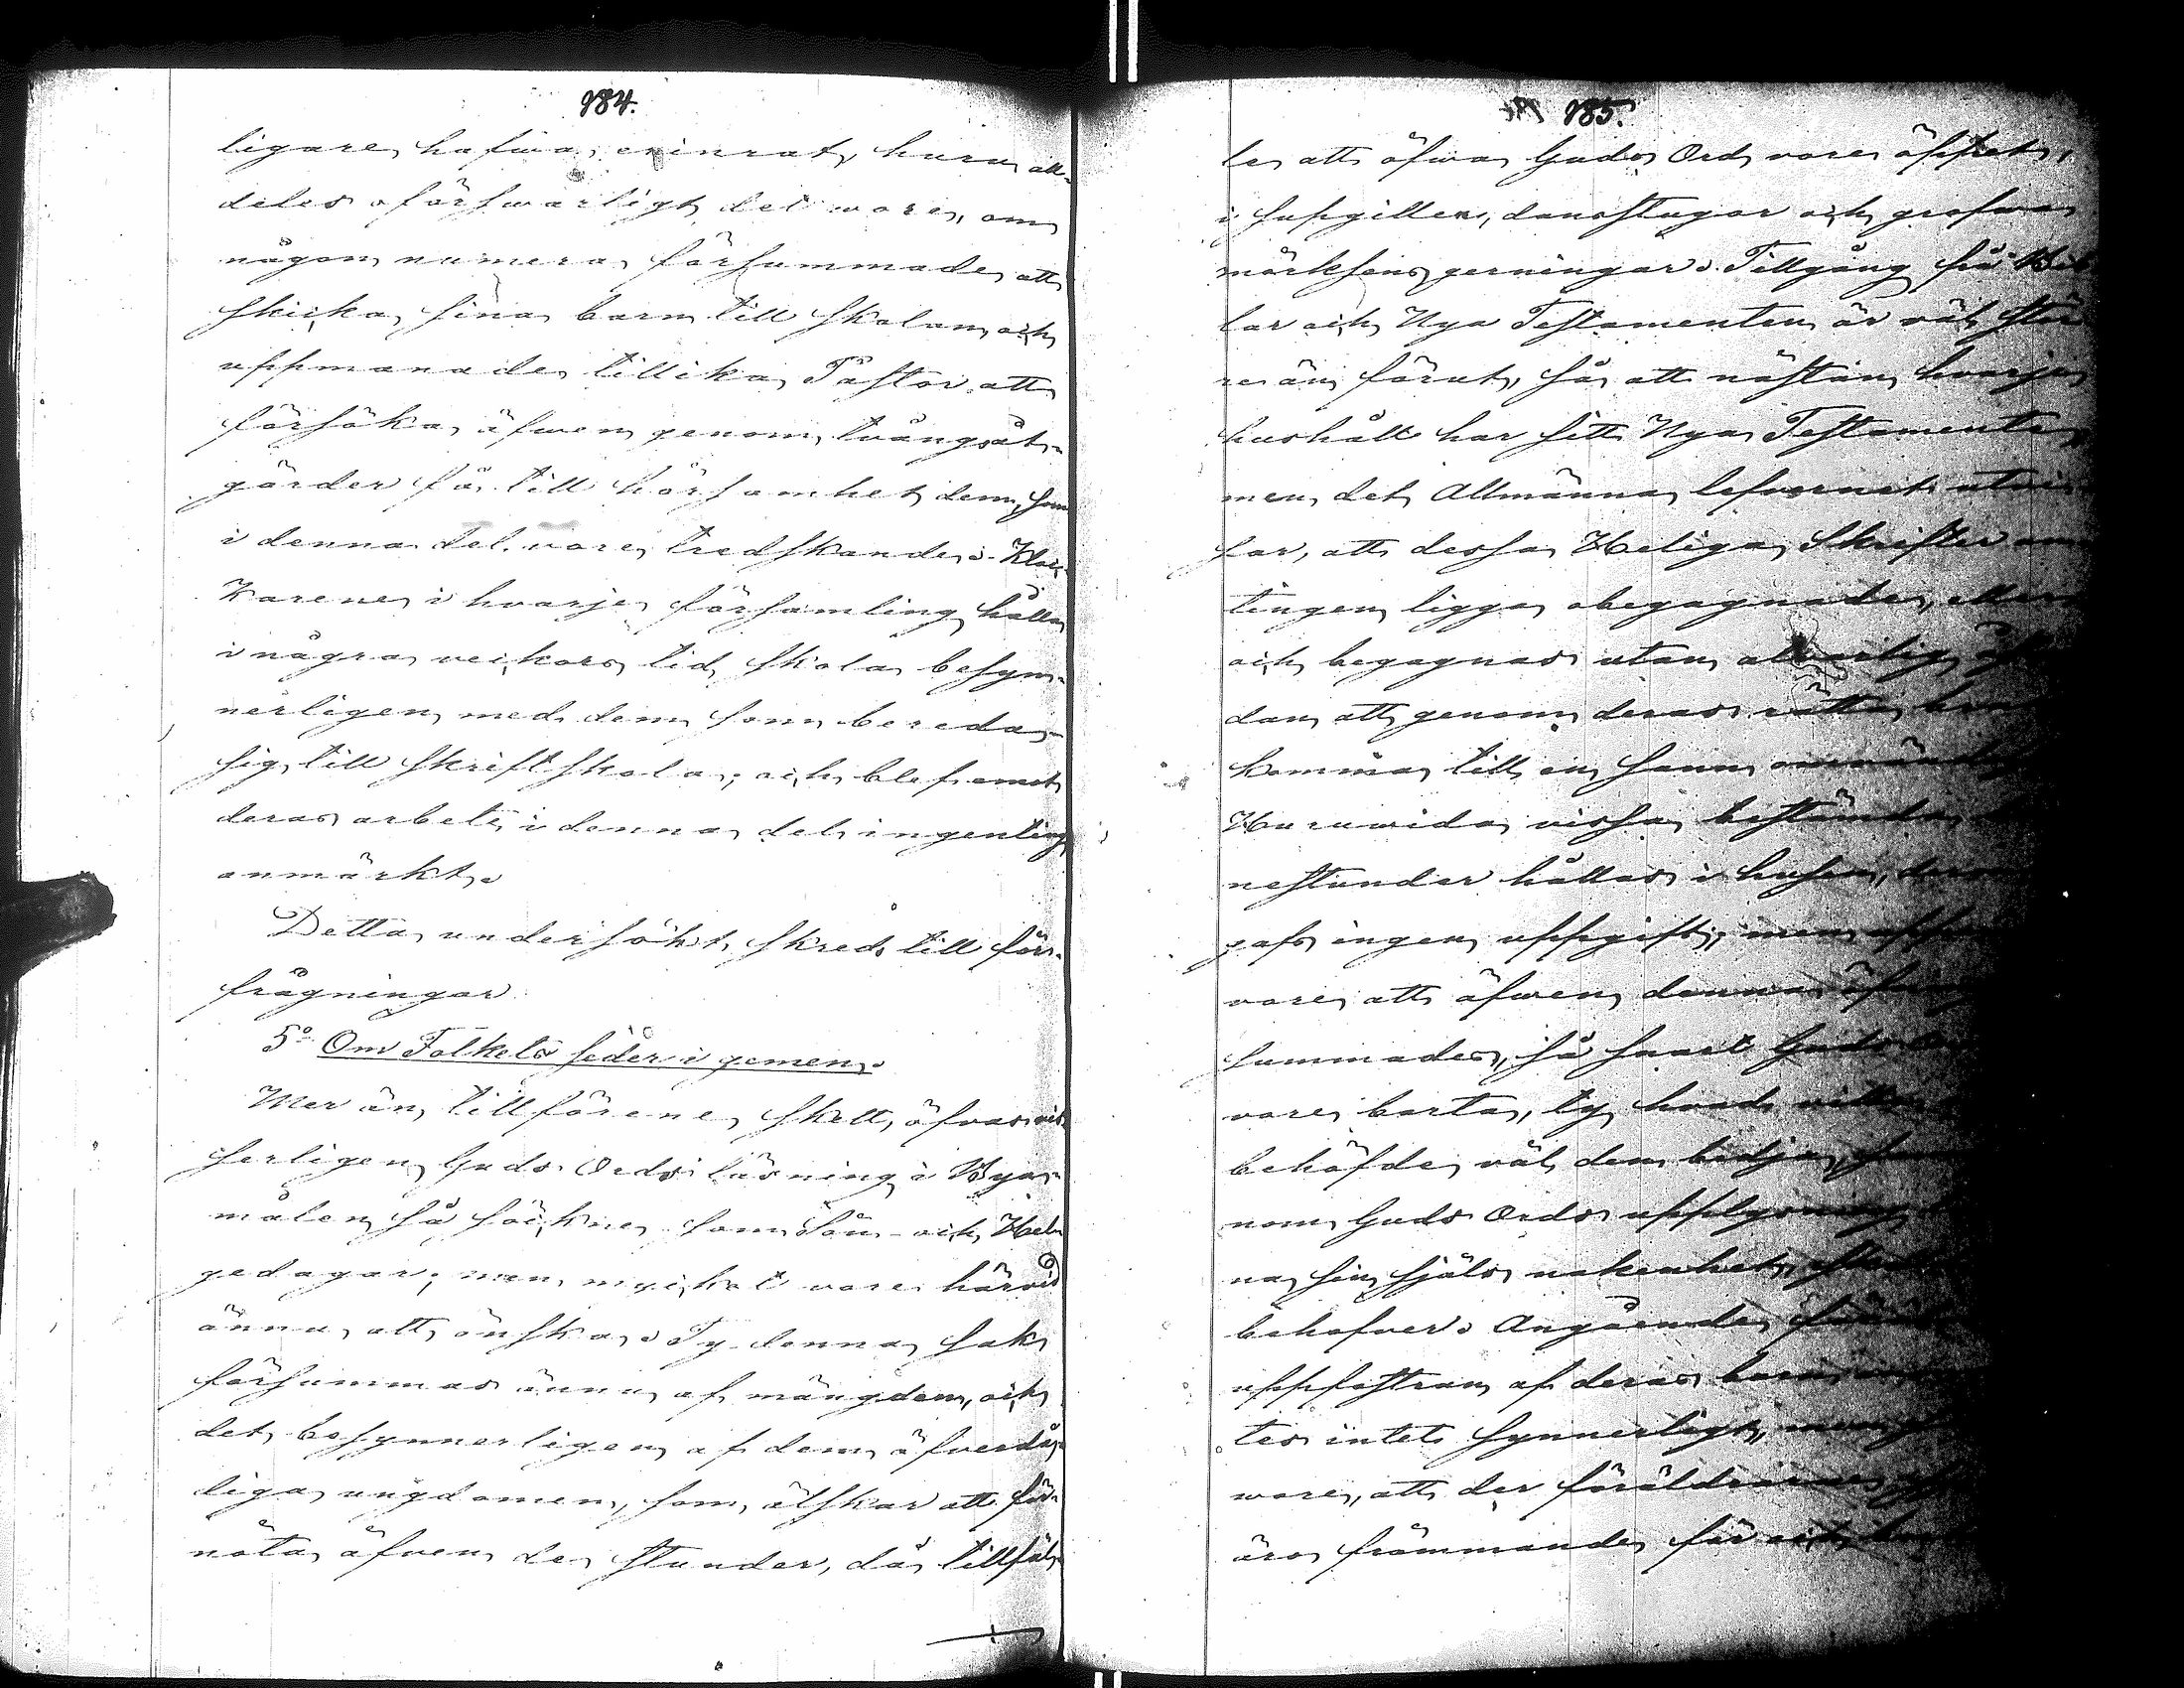 184.
ligare hafwa erinrat, huru all-
deles oförswarligt det wore, om
någon numera försummade att
skicka sina barn till Skolan, och
uppmanades tillika Pastor att
försöka äfwen genom twångsåt-
gärder få till hörsamhet dem, som
i denna del wore tredskande. Kloc-
karene i hwarje församling hålla
i några weckors tid skola besyn-
nerligen med dem som bereda
sig till Skriftskola; och blef emot
deras arbete i denna del ingenting
anmärkt.
Detta undersökt, skreds till för-
frågningar
5o Om Folkets seder i gemen.
Mer än tillförene skett, öfvas wis-
serligen Guds Ords läsning i Bya-
målen så söckne- som Sön- och Hel-
gedagar; men mycket vore härvid
ännu att önska. Ty denna sak
försummas ännu af mängden, och
det besynnerligen af den öfverdå-
liga ungdomen, som älskar att för-
nöta äfven de stunder, då tillfäl-
185.
le att öfwa Guds Ord vore öppet,
i supgillen, dansstugor och grofwa
mörksens gerningar. Tillgång på Bib-
lar och Nya Testamenten är väl stör-
re än förut, så att nästan hvarje
hushåll har sitt Nya Testamente
men det Allmänna lefvernet utvi-
sar, att dessa Heliga Skrifter an-
tingen ligga obegagnade, eller
och begagnas utan allvarlig
dan att genom deras rätta bru
komma till en sann
Huruwida vissa bestämda
nestunder hållas i husen, der
gafs ingen uppgift, men
vore att äfwen denna
summades, så snart Guds
vore borta, ty hvad
behöfde väl den bedja,
nom Guds Ords upplysning
na sin själs nakenhet,
behofver. Angående
uppfostran af deras barn
tes intet synnerligt, men
wore, att der föräldrarne
äro främmande för och